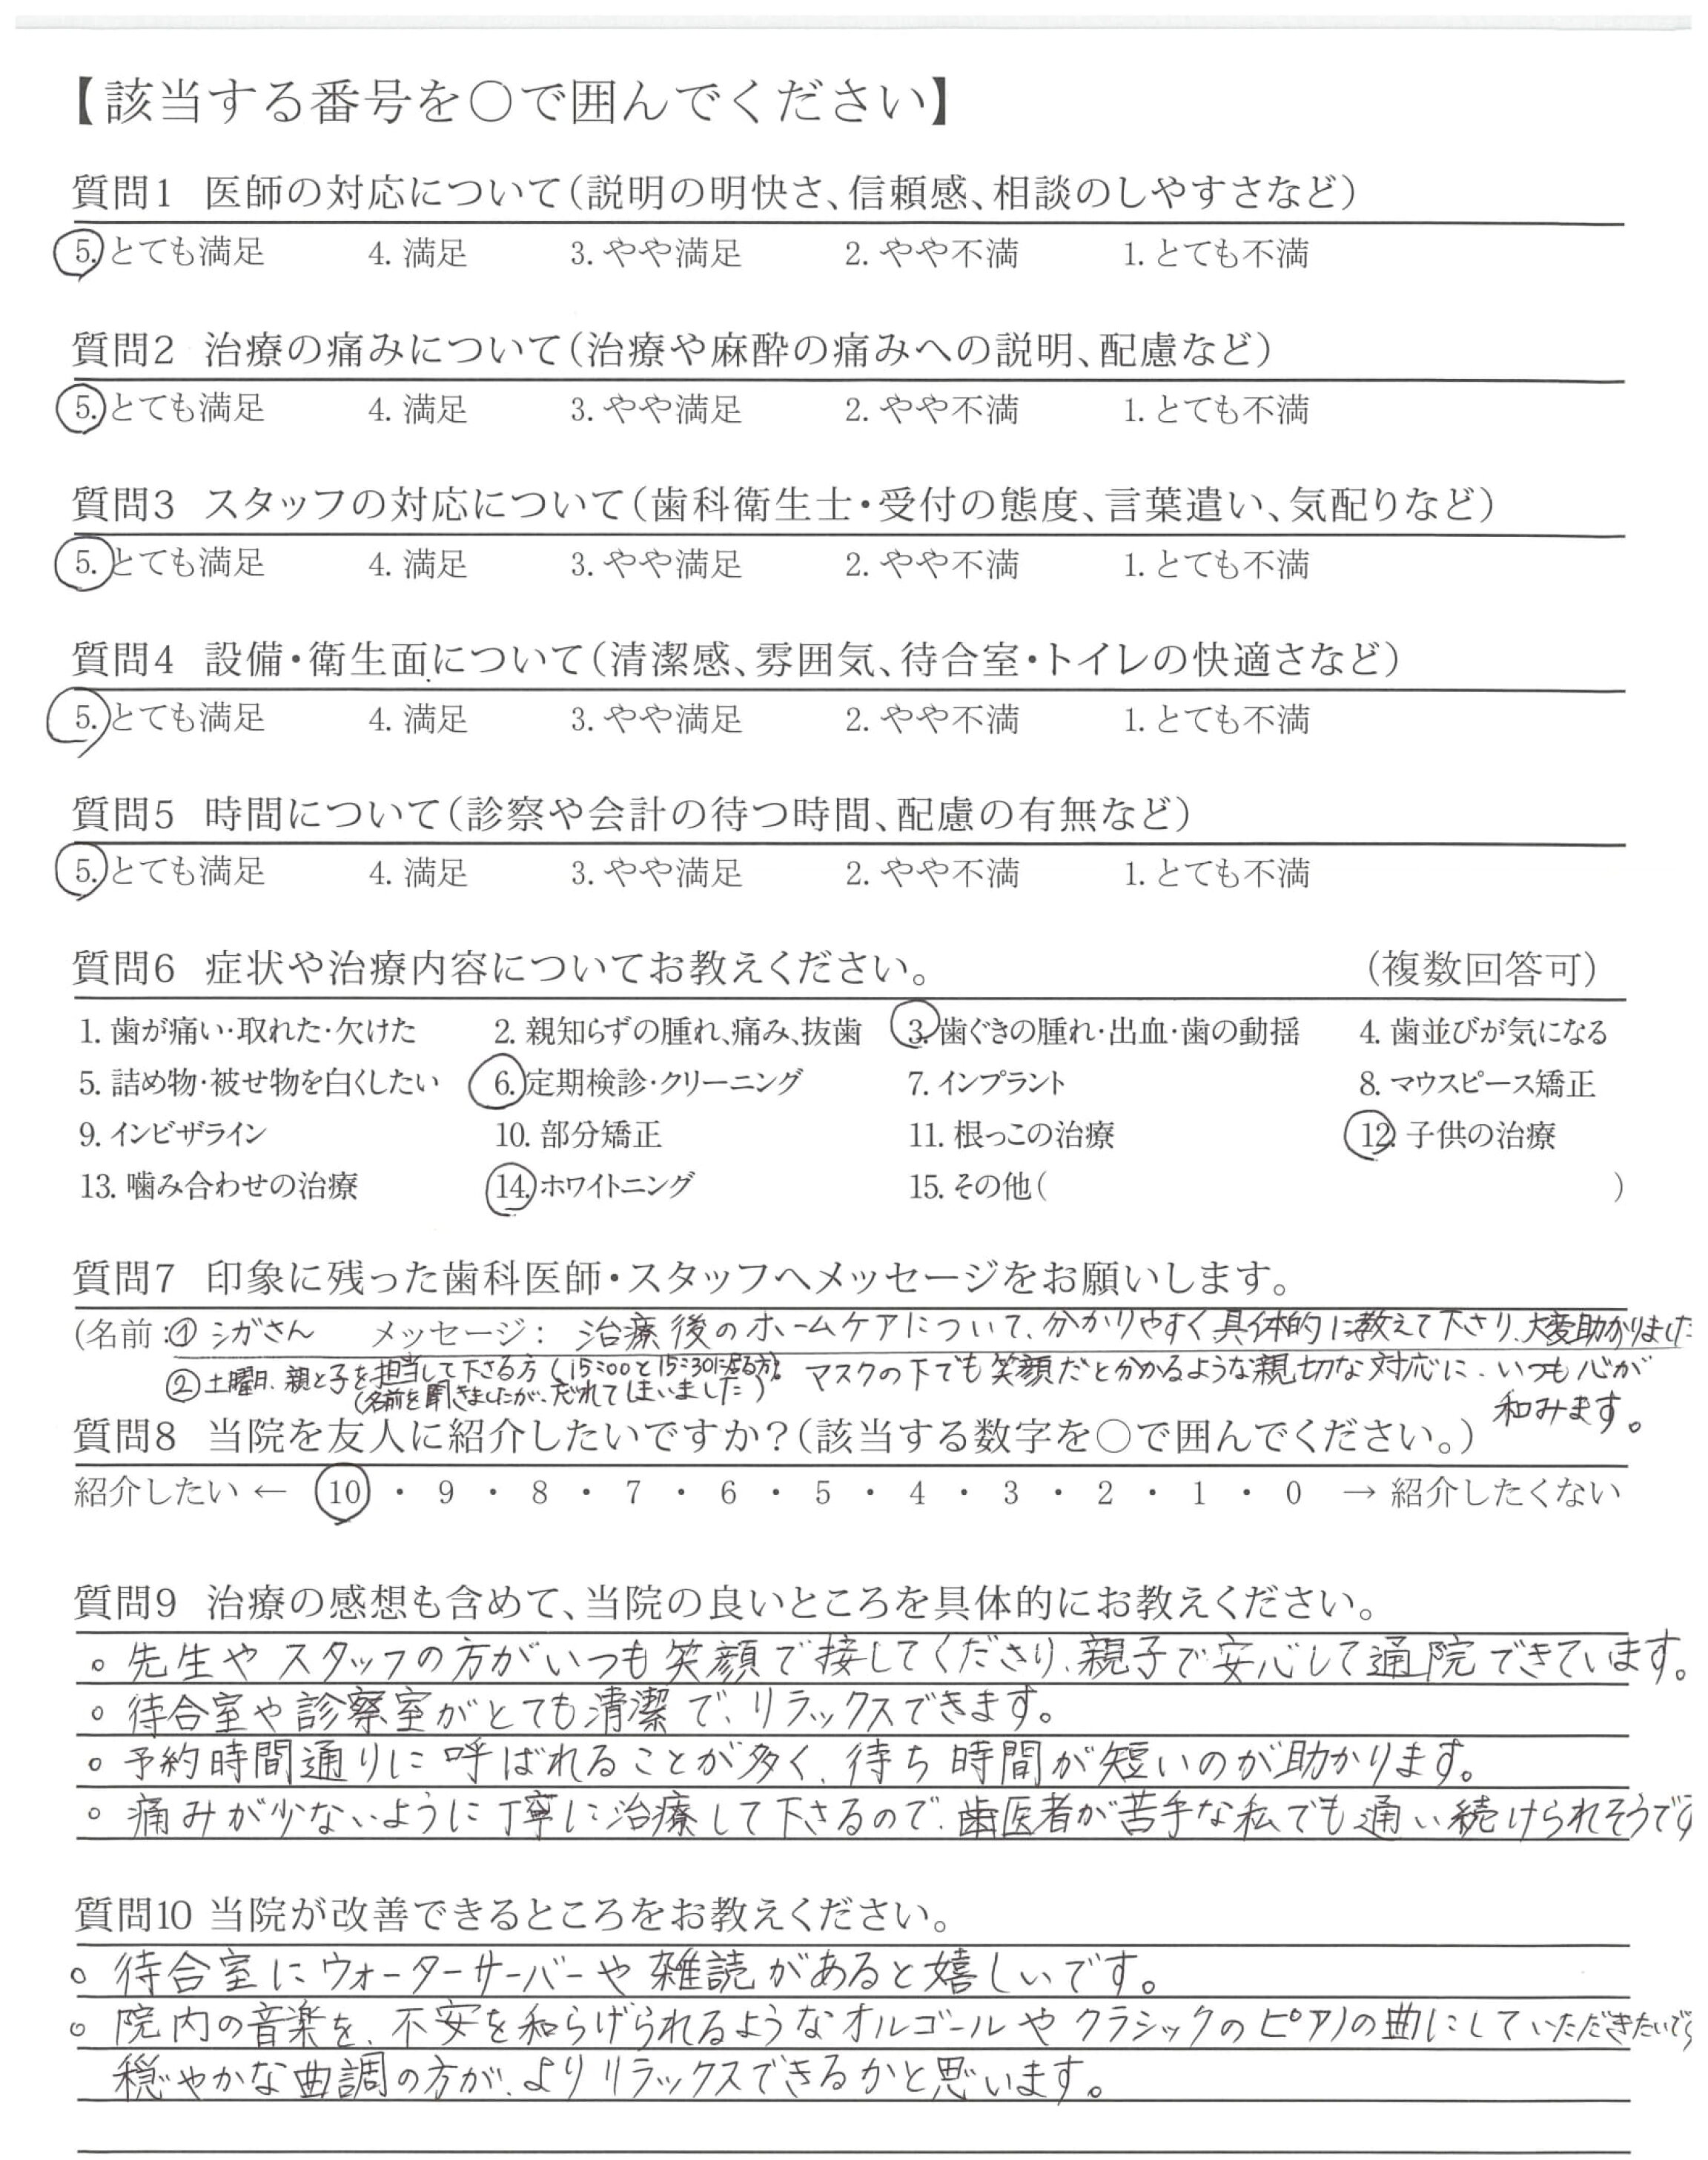 【該当する番号を○で囲んでください】
質問1 医師の対応について(説明の明快さ、信頼感、相談のしやすさなど)
5. とても満足 4. 満足 3. やや満足 2. やや不満 1. とても不満
質問2 治療の痛みについて(治療や麻酔の痛みへの説明、配慮など)
5. とても満足 4. 満足 3. やや満足 2. やや不満 1. とても不満
質問3 スタッフの対応について(歯科衛生士・受付の態度、言葉遣い、気配りなど)
5. とても満足 4. 満足 3. やや満足 2. やや不満 1. とても不満
質問4 設備・衛生面について(清潔感、雰囲気、待合室・トイレの快適さなど)
5. とても満足 4. 満足 3. やや満足 2. やや不満 1. とても不満
質問5 時間について(診察や会計の待つ時間、配慮の有無など)
5. とても満足 4. 満足 3. やや満足 2. やや不満 1. とても不満
質問6 症状や治療内容についてお教えください。 (複数回答可)
1. 歯が痛い・取れた・欠けた 2. 親知らずの腫れ、痛み、抜歯 3. 歯ぐきの腫れ・出血・歯の動揺 4. 歯並びが気になる
5. 詰め物・被せ物を白くしたい 6. 定期検診・クリーニング 7. インプラント 8. マウスピース矯正
9. インビザライン 10. 部分矯正 11. 根っこの治療 12. 子供の治療
13. 噛み合わせの治療 14. ホワイトニング 15. その他( )
質問7 印象に残った歯科医師・スタッフへメッセージをお願いします。
(名前:① シガさん メッセージ: 治療後のホームケアについて、分かりやすく具体的に教えて下さり、大変助かりました
② 土曜日、親と子を担当して下さる方(15:00と15:30に居る方) マスクの下でも笑顔だと分かるような親切な対応に、いつも心が
(名前を聞きましたが、忘れてしまいました) 和みます。
質問8 当院を友人に紹介したいですか?(該当する数字を○で囲んでください。)
紹介したい ← 10 ・ 9 ・ 8 ・ 7 ・ 6 ・ 5 ・ 4 ・ 3 ・ 2 ・ 1 ・ 0 → 紹介したくない
質問9 治療の感想も含めて、当院の良いところを具体的にお教えください。
。先生やスタッフの方がいつも笑顔で接してくださり、親子で安心して通院できています。
。待合室や診察室がとても清潔で、リラックスできます。
。予約時間通りに呼ばれることが多く、待ち時間が短いのが助かります。
。痛みが少ないように丁寧に治療して下さるので、歯医者が苦手な私でも通い続けられそうです
質問10 当院が改善できるところをお教えください。
。待合室にウォーターサーバーや雑読があると嬉しいです。
。院内の音楽を、不安を和らげられるようなオルゴールやクラシックのピアノの曲にしていただきたいです
穏やかな曲調の方が、よりリラックスできるかと思います。